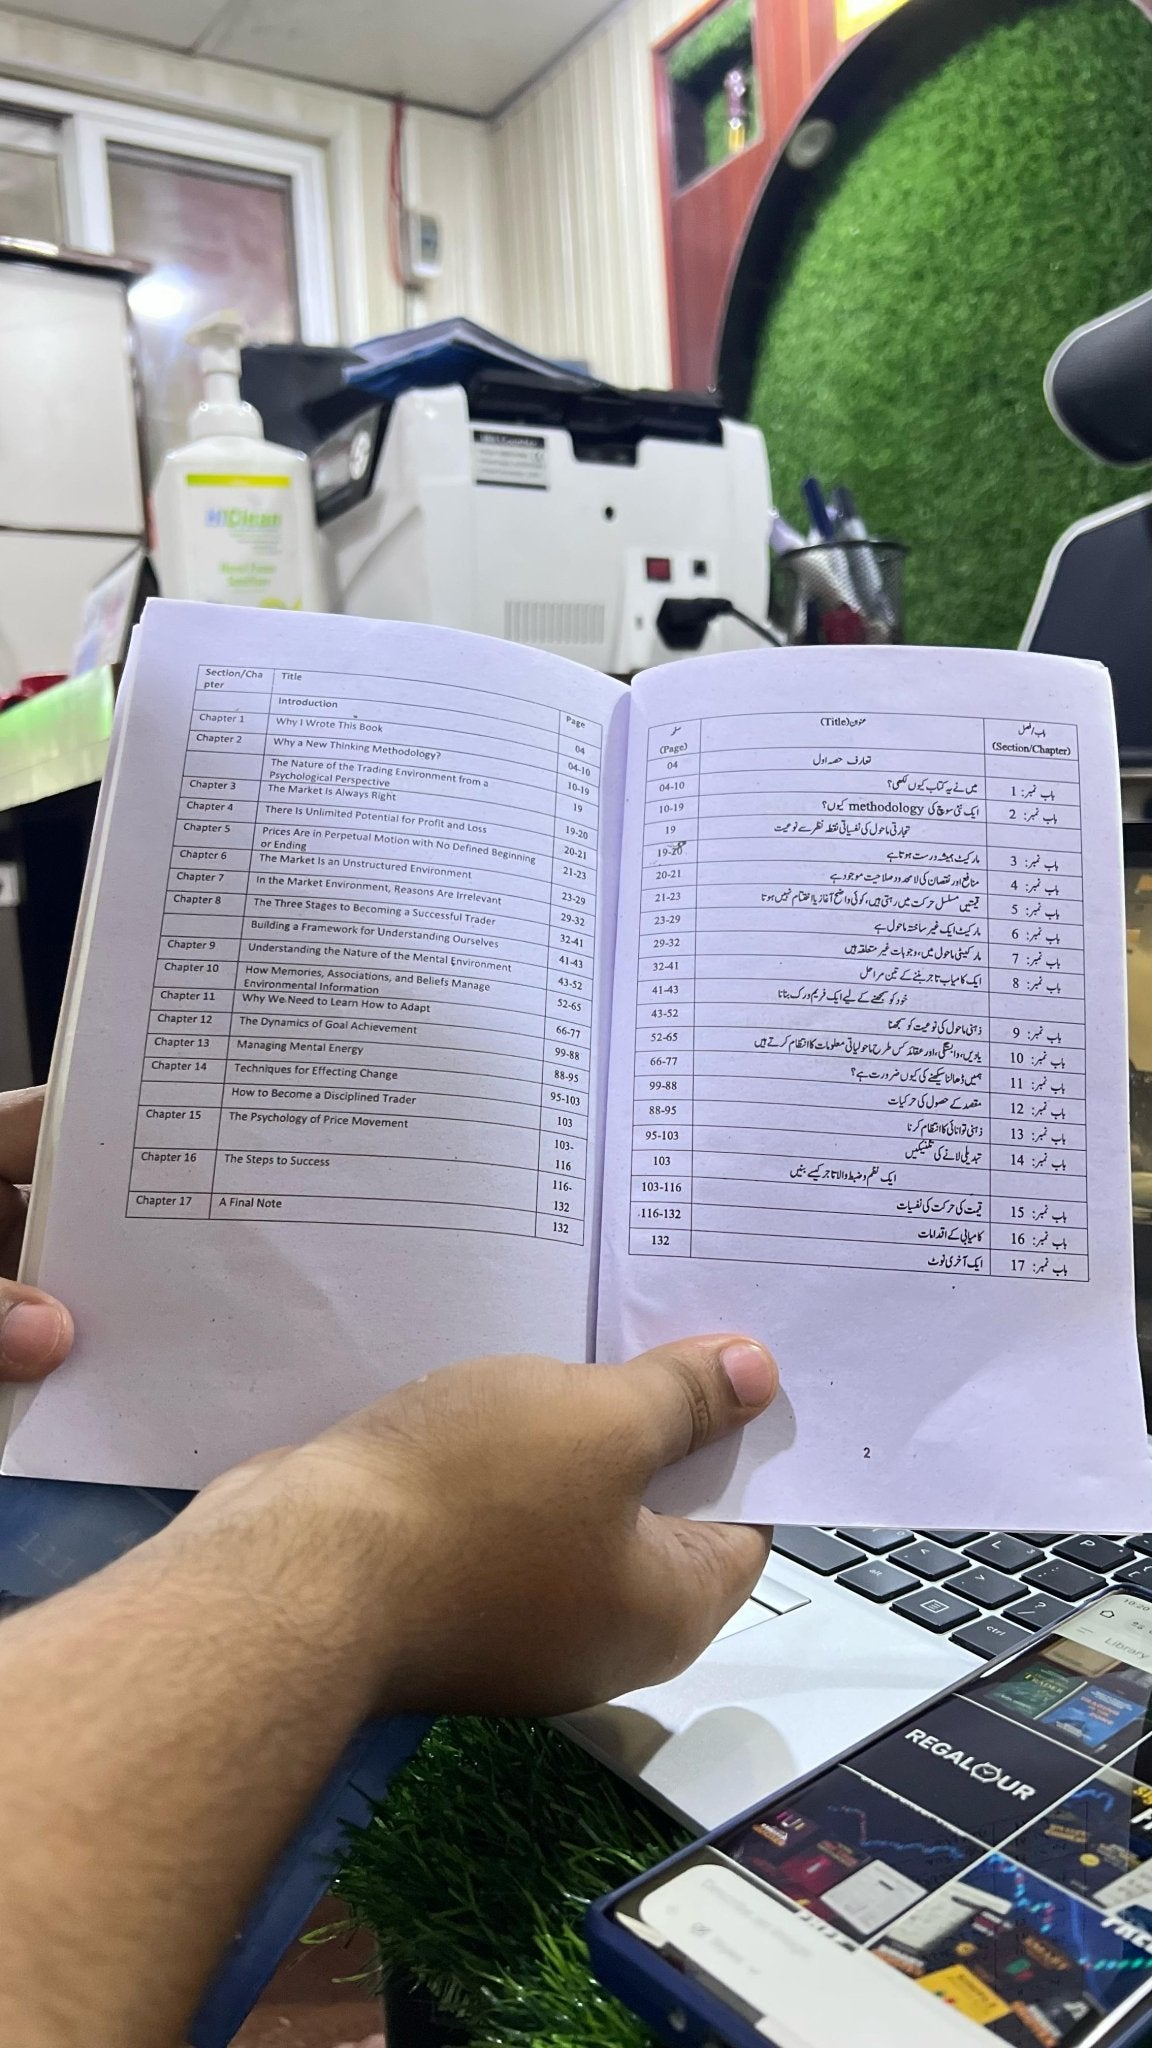 HiClean
Hand
Sanitizer
Section/Cha
pter
Title
Page
Introduction
04
Chapter 1
Why I Wrote This Book
04-10
Chapter 2
Why a New Thinking Methodology?
10-19
The Nature of the Trading Environment from a
Psychological Perspective
19
Chapter 3
The Market Is Always Right
19-20
Chapter 4
There Is Unlimited Potential for Profit and Loss
20-21
Chapter 5
Prices Are in Perpetual Motion with No Defined Beginning
or Ending
21-23
Chapter 6
The Market Is an Unstructured Environment
23-29
Chapter 7
In the Market Environment, Reasons Are Irrelevant
29-32
Chapter 8
The Three Stages to Becoming a Successful Trader
32-41
Building a Framework for Understanding Ourselves
41-43
Chapter 9
Understanding the Nature of the Mental Environment
43-52
Chapter 10
How Memories, Associations, and Beliefs Manage
Environmental Information
52-65
Chapter 11
Why We Need to Learn How to Adapt
66-77
Chapter 12
The Dynamics of Goal Achievement
99-88
Chapter 13
Managing Mental Energy
88-95
Chapter 14
Techniques for Effecting Change
95-103
How to Become a Disciplined Trader
103
Chapter 15
The Psychology of Price Movement
103-
116
Chapter 16
The Steps to Success
116-
132
Chapter 17
A Final Note
132
باب/فصل
(Section/Chapter)
عنوان(Title)
صفحہ
(Page)
تعارف حصہ اول
04
باب نمبر: 1
میں نے یہ کتاب کیوں لکھی؟
04-10
باب نمبر: 2
ایک نئی سوچ کی methodology کیوں؟
10-19
تجارتی ماحول کی نفسیاتی نقطہ نظر سے نوعیت
19
باب نمبر: 3
مارکیٹ ہمیشہ درست ہوتا ہے
19-20
باب نمبر: 4
منافع اور نقصان کی لامحدود صلاحیت موجود ہے
20-21
باب نمبر: 5
قیمتیں مسلسل حرکت میں رہتی ہیں، کوئی واضح آغاز یا اختتام نہیں ہوتا
21-23
باب نمبر: 6
مارکیٹ ایک غیر ساختہ ماحول ہے
23-29
باب نمبر: 7
مارکیٹی ماحول میں، وجوہات غیر متعلقہ ہیں
29-32
باب نمبر: 8
ایک کامیاب تاجر بننے کے تین مراحل
32-41
خود کو سمجھنے کے لیے ایک فریم ورک بنانا
41-43
باب نمبر: 9
ذہنی ماحول کی نوعیت کو سمجھنا
43-52
باب نمبر: 10
یادیں، وابستگی، اور عقائد کس طرح ماحولیاتی معلومات کا انتظام کرتے ہیں
52-65
باب نمبر: 11
ہمیں ڈھالنا سیکھنے کی کیوں ضرورت ہے؟
66-77
باب نمبر: 12
مقصد کے حصول کی حرکیات
99-88
باب نمبر: 13
ذہنی توانائی کا انتظام کرنا
88-95
باب نمبر: 14
تبدیلی لانے کی تکنیکیں
95-103
ایک نظم و ضبط والا تاجر کیسے بنیں
103
باب نمبر: 15
قیمت کی حرکت کی نفسیات
103-116
باب نمبر: 16
کامیابی کے اقدامات
116-132
باب نمبر: 17
ایک آخری نوٹ
132
2
L
P
alt
ctrl
10:20
Library
TRADER
REGALOUR